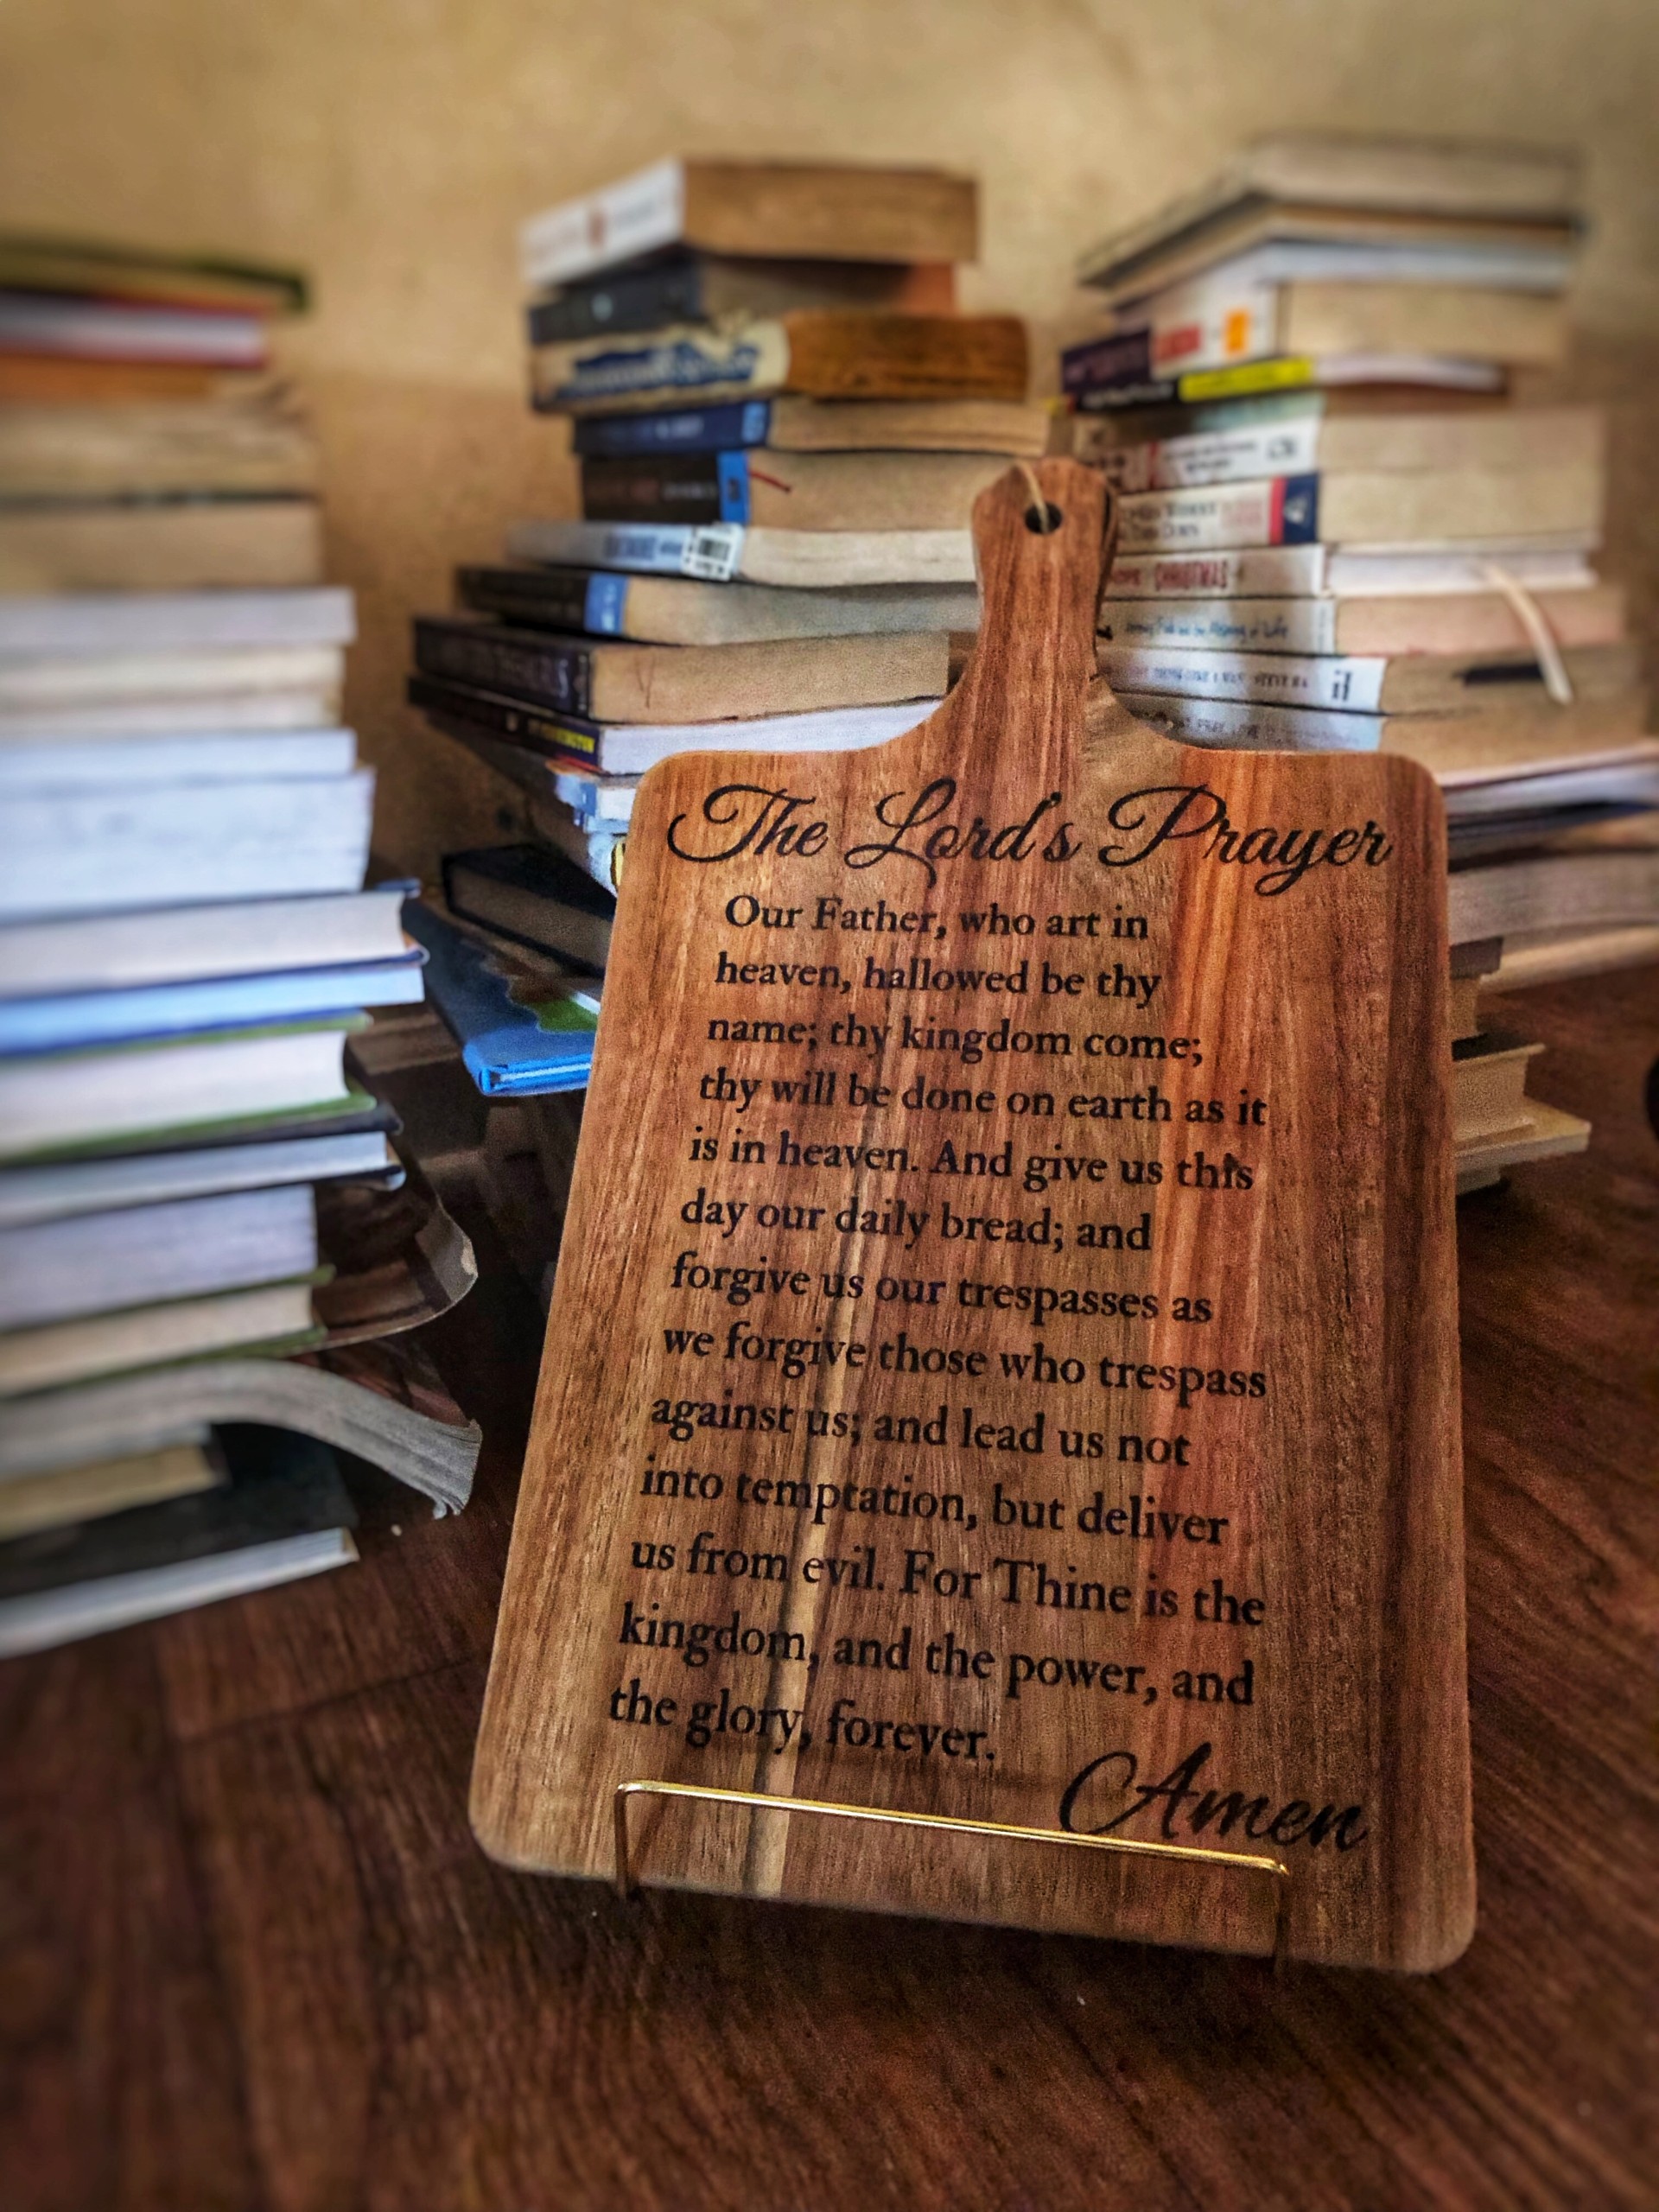 The Lord's Prayer
Our Father, who art in
heaven, hallowed be thy
name; thy kingdom come;
thy will be done on earth as it
is in heaven. And give us this
day our daily bread; and
forgive us our trespasses as
we forgive those who trespass
against us; and lead us not
into temptation, but deliver
us from evil. For Thine is the
kingdom, and the power, and
the glory, forever.
Amen